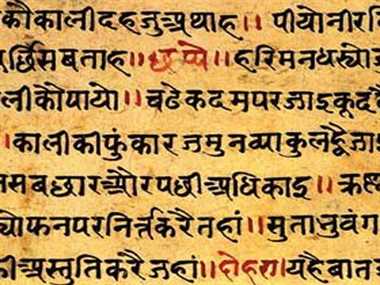 कौकालीदहजुअथाह॥ पीयोनीर
र्छिसबताह॥छप्पे॥हरिमनधस्यो
लीकौपायो॥चढेकदमपरजाइकूद
॥कालीकीफुंकारजमुनव्याकुलह्वैजा
नसबछारऔरपछीअधिकाइ॥
फनपरनिर्त्तकरैतहां॥सुतानुवंग
अस्तुतिकरैजहां॥दोहरा॥यहैबात